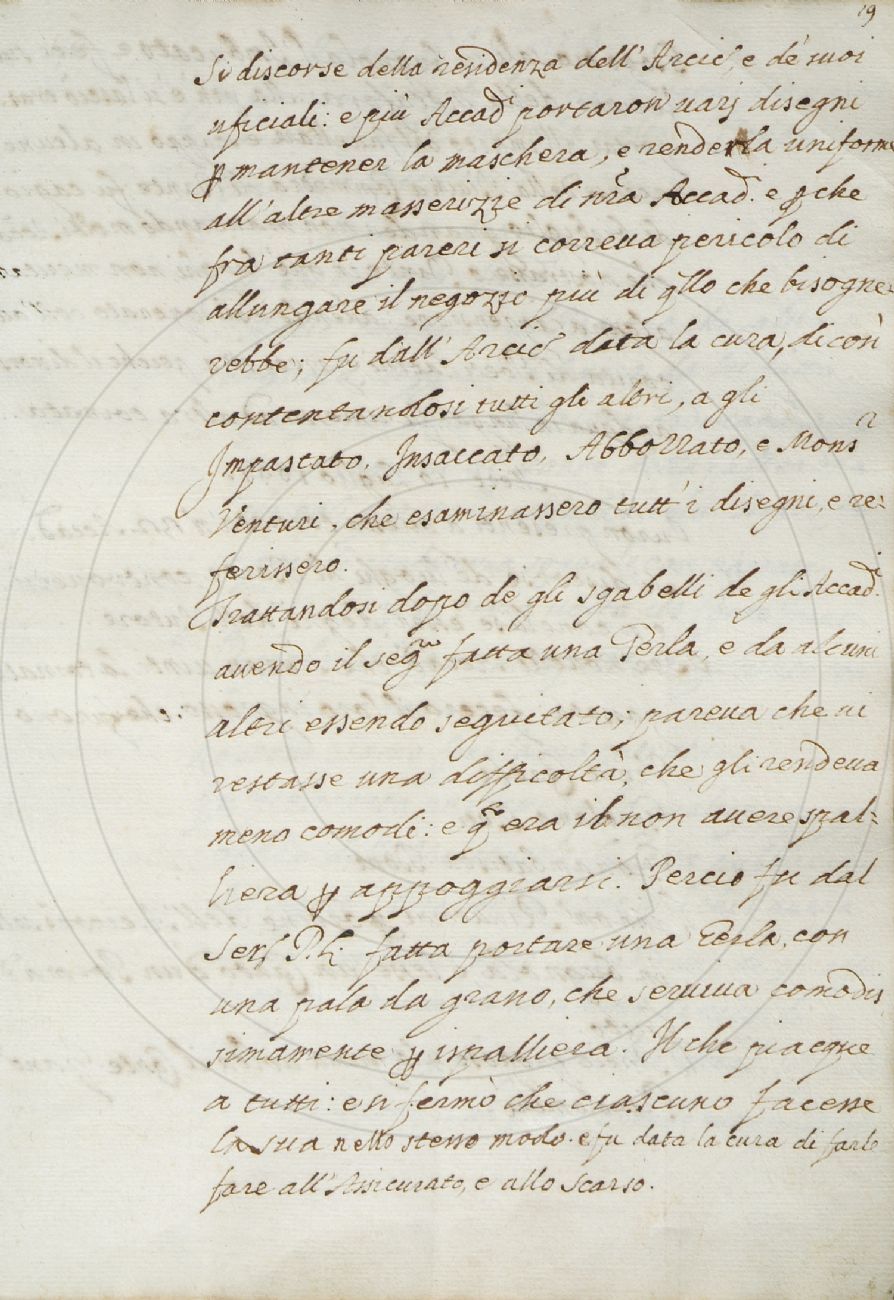 19
Si discorse della residenza dell' Arcic.º, e de' suoi
uficiali: e più Accad.ⁱ portaron varj disegni
ꝑ mantener la maschera, e renderla uniforme
all' altre masserizie di nr̃a Accad. e ꝑ che
fra tanti pareri si correva pericolo di
allungare il negozio più di q̃llo che bisogne:
rebbe; fu dall' Arcic.º data la cura, di così
contentandosi tutti gli altri, a gli
Impastato, Insaccato, Abbozzato, e Mons.ʳ
Venturi. che esaminassero tutt' i disegni, e re:
ferissero.
Trattandosi dopo de gli sgabelli de gli Accad.ⁱ
avendo il seg.ʳⁱᵒ fatta una Gerla, e da alcuni
altri essendo seguitato; pareva che vi
restasse una difficoltà, che gli rendeva
meno comodi: e q.ᵗᵃ era il non avere spal:
liera ꝑ appoggiarsi. Percio fu dal
Ser.ᵐᵒ P. L. fatta portare una Gerla, con
una pala da grano, che serviva comodis
simamente ꝑ ispalliera. Il che piacque
a tutti: e si fermò che ciascuno facesse
la sua nello stesso modo. e fu data la cura di farle
fare all' Assicurato, e allo Scarso.